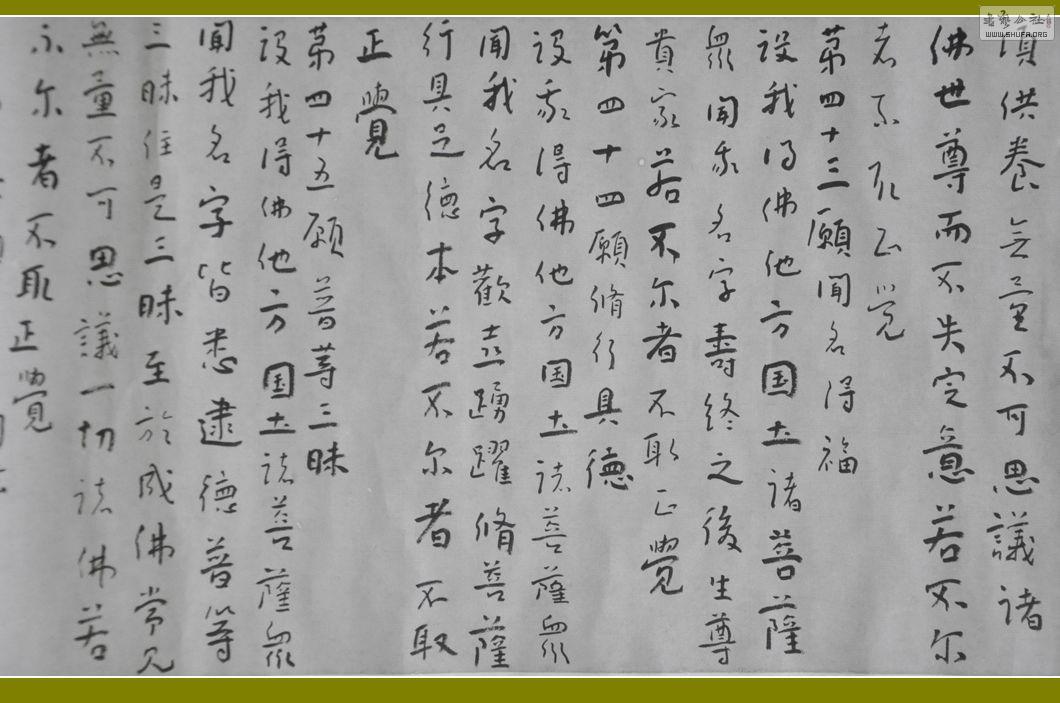 頃供養无量不可思議諸
佛世尊而不失定意若不尔
者不取正觉
第四十三願聞名得福
设我得佛他方国土诸菩薩
眾聞我名字壽终之後生尊
貴家若不尔者不取正覺
第四十四願脩行具德
设我得佛他方国土诸菩薩眾
聞我名字歡喜踴躍脩菩薩
行具足德本若不尔者不取
正覺
第四十五願普等三昧
设我得佛他方国土诸菩薩眾
聞我名字皆悉逮德普等
三昧住是三昧至於成佛常见
無量不可思議一切诸佛若
不尔者不取正覺
書法公社
WWW.SHUFA.ORG